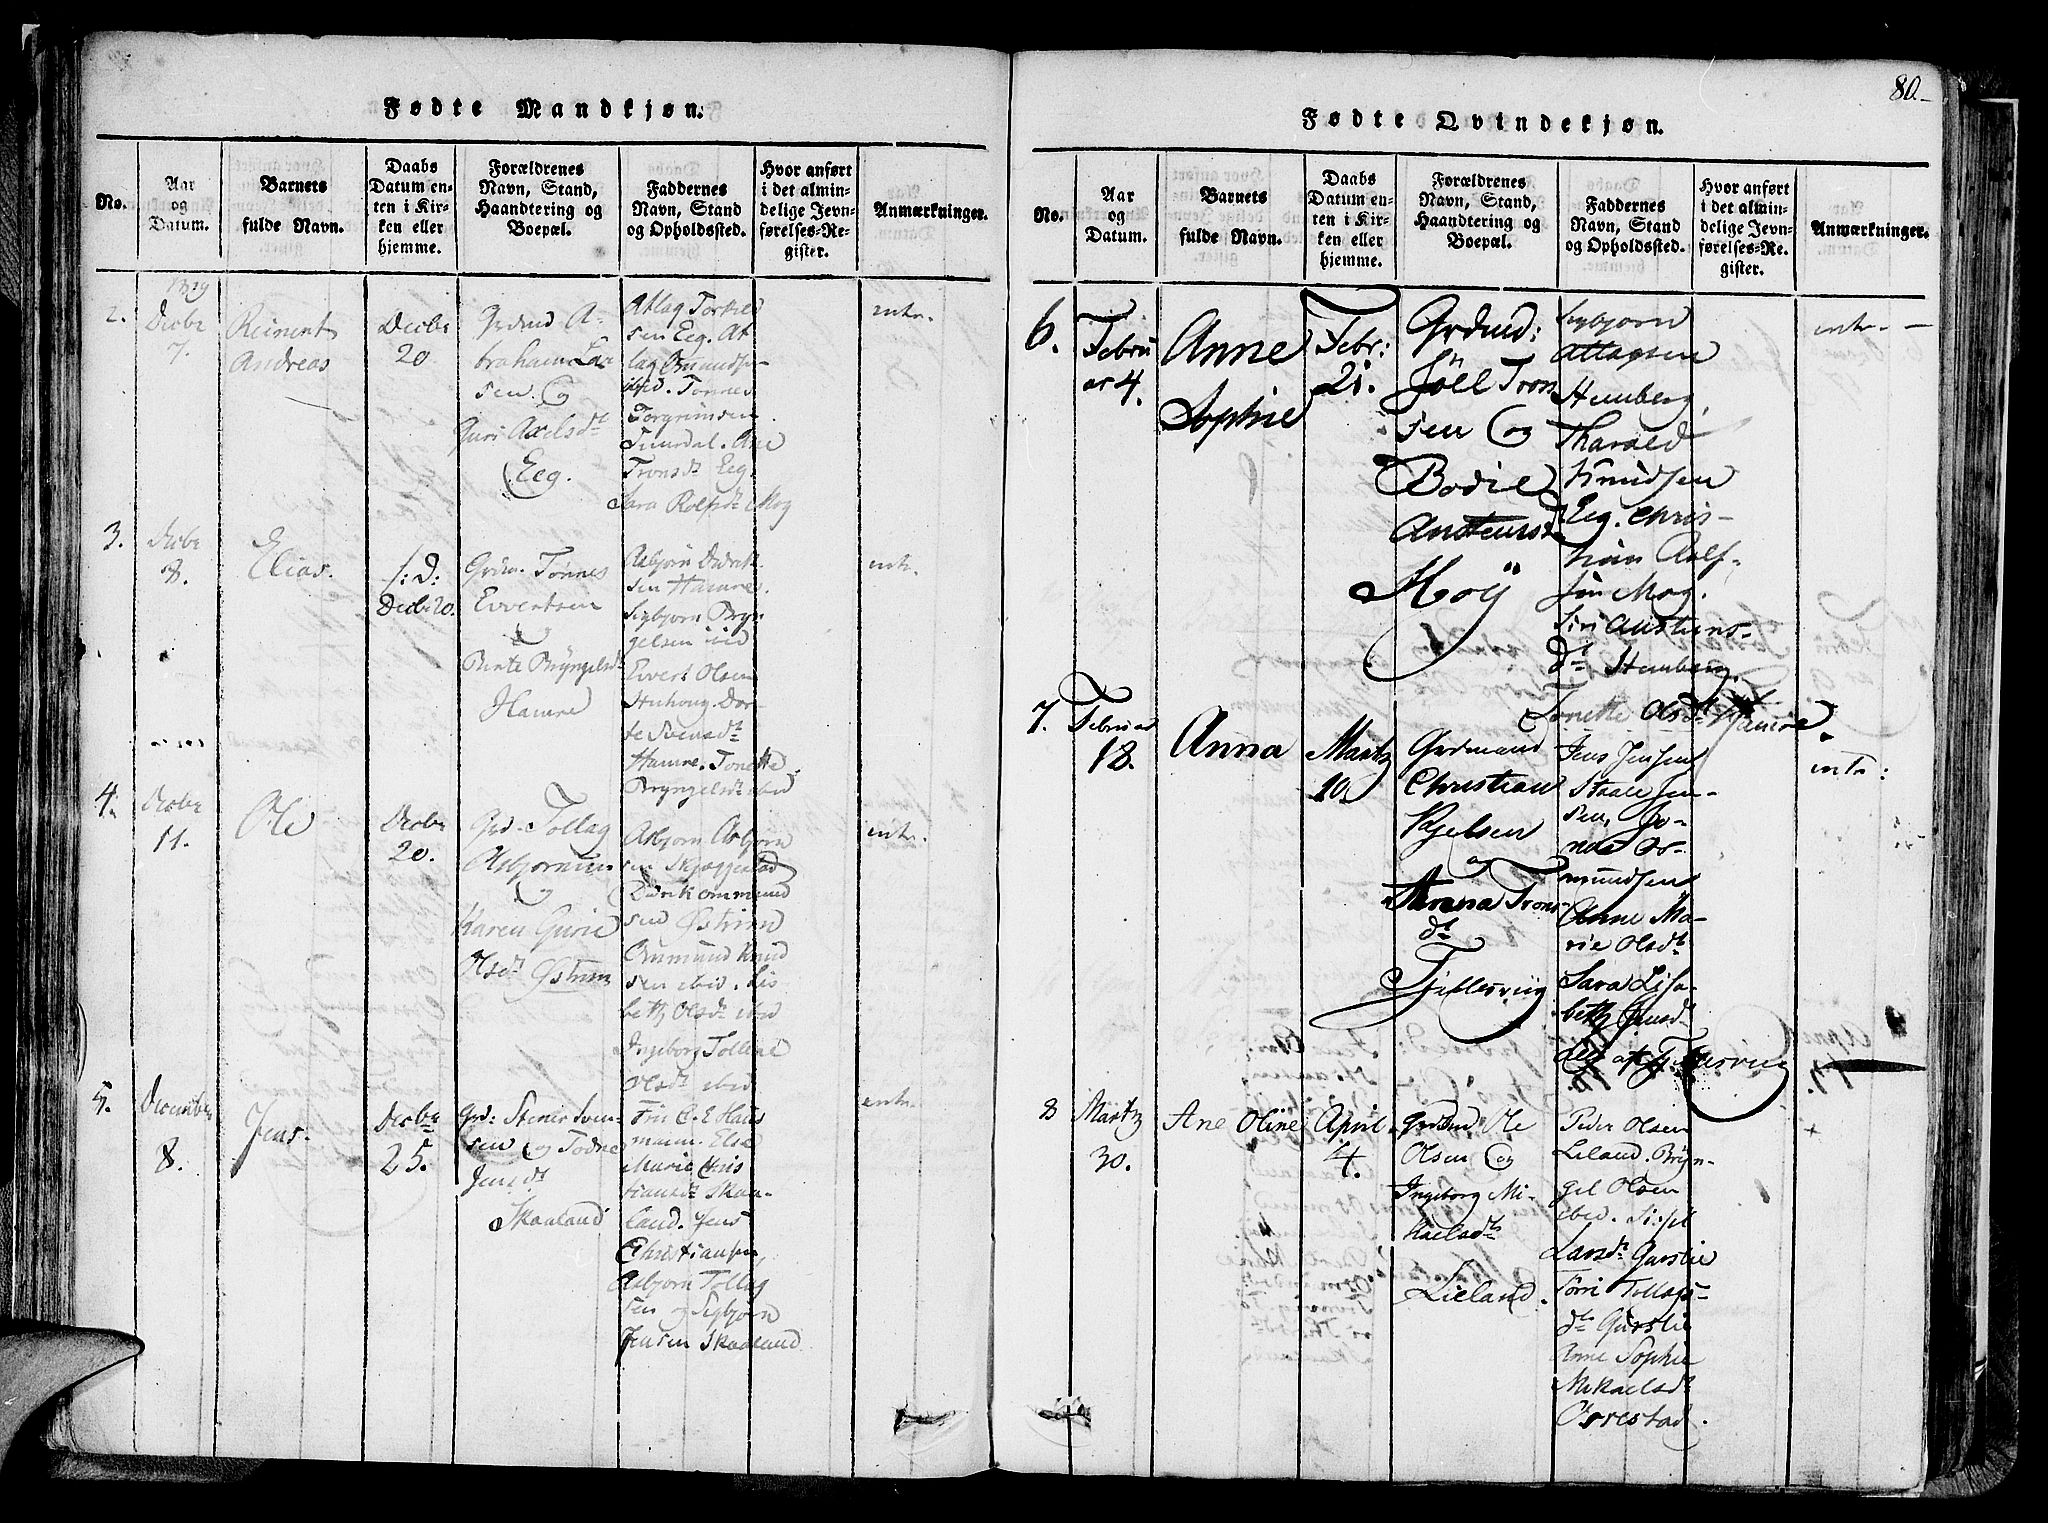 80.
Fødte Mandkjøn.
No.
Aar
og
Datum.
Barnets
fulde Navn.
Daabs
Datum en-
ten i Kir-
ken eller
hjemme.
Forældrenes
Navn, Stand,
Haandtering og
Boepæl.
Faddernes
Navn, Stand
og Opholdssted.
Hvor anført
i det almin-
delige Jevn-
førelses-Re-
gister.
Anmærkninger.
2.
1819
Decbr
7.
Reinert
Andreas
Decbr
20.
Grdmd A-
braham Lar
sen og
Guri Axelsdt
Eeg.
Atlag Torkel
sen Eeg. At
lag Omundse
ibid. Tønnes
Torgrimsen
Tronsdt Eeg.
Sara Rolfsdt Mog
intr.
3.
Decbr
8.
Elias.
s:D:
Decbr 20.
Grdm. Tønnes
Evertsen
Berte Bryngelsdt
Hamre
Asbjørn Didrik
sen Hamre.
Sigbjørn Bryn
gelsen ibid
Evert Olsen
Dor-
te Svensdt
Hamre. Tonette
Bryngelsdt ibid
intr.
4.
Decbr
11.
Ole
Decbr
20.
Grd. Tollag
Asbjørnsen
og
Karen Gurie
Olsdt Østrem
Asbjørn Asbjørn
sen Skjeggestad
Didrik Ommund
sen Østrem
Gumund Knud
sen ibid. Lis
beth Olsdt ibid
Ingeborg Tolline
Olsdt ibid
intr.
5.
December
8.
Jens.
Decbr
25.
Grd: Stener Sven-
sen og Todne
Jensdt
Skaaland
Fru C. E. Haus
mann. Else
Marie Chris
tiansdt Skaa-
land. Jens
Christiansen,
Asbjørn Tollag
sen og Sigbjørn
Jensen Skaaland
intr.
Fødte Qvindekjøn.
No.
Aar
og
Datum.
Barnets
fulde Navn.
Daabs
Datum en-
ten i Kir-
ken eller
hjemme.
Forældrenes
Navn, Stand,
Haandtering og
Boepæl.
Faddernes
Navn, Stand
og Opholdssted.
Hvor anført
i det almin-
delige Jevn-
førelses-Re-
gister.
Anmærkninger.
6.
Febru
ar 4.
Anne
Sophie
Febr:
21.
Grdmd:
Jöel Tron
sen og
Bodil
Austensdt
Moÿ
Sigbjørn
Atlagsen
Humberg,
Tharald
Knudsen
Eeg. Chris-
tian Rolf-
sen Mog.
Siri Austens-
dt Humberg.
Tonette Olsdt Hamre
intr.
7.
Februar
18.
Anna
Martz
10.
Grdmand
Christian
Kjelsen
og
Anna Trons-
dt
Jens Jensen
Staale Jen-
sen, Jo-
nas Os-
mundsen
Anne Ma-
rie Olsdt
Sara Lisa-
beth Jensdt
intr:
8
Martz
30.
Ane Oline
April
4.
Grdmd Ole
Olsen og
Ingeborg Mi-
kaelsdt
Lieland.
Peder Olsen
Leland. Bryn-
gel Olsen
ibid. Sispl
Larsdt Gurslie
Tøri Tollags-
dt Gurslie
Anne Sophie
Mikaelsdt
Orrestad.